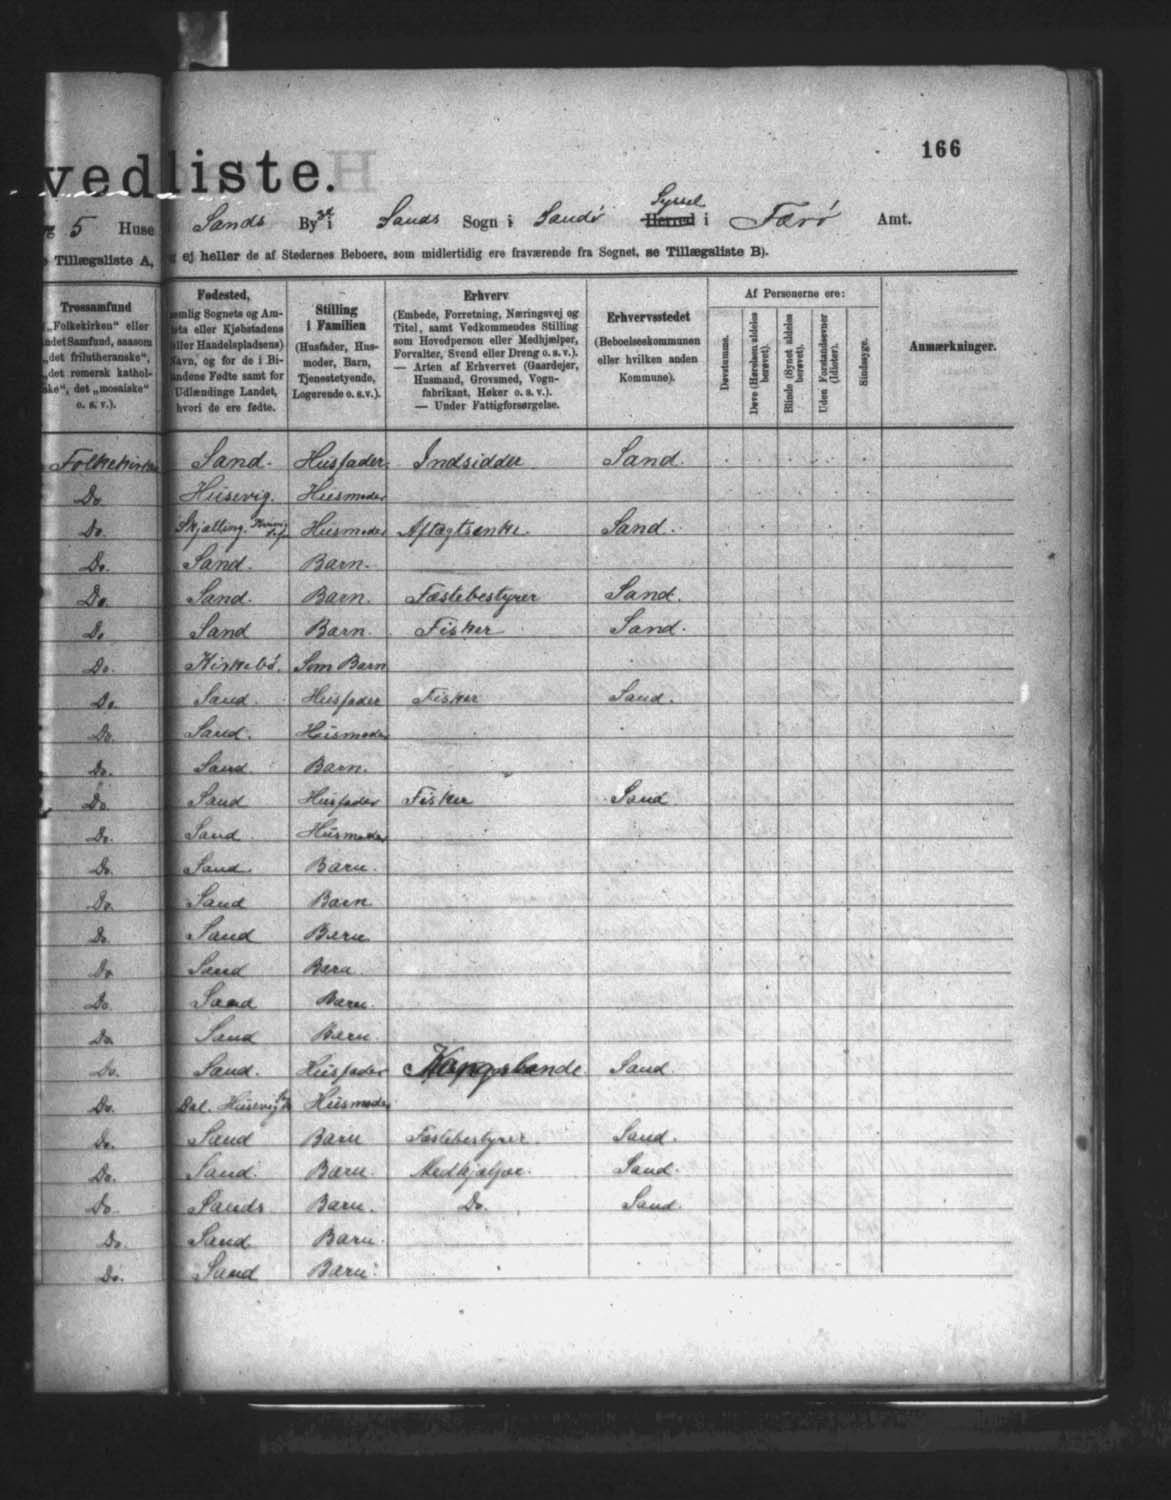 166
vedliste.
5 Huse Sands By i Sands Sogn i Sandö Syssel Herred i Færö Amt.
Tillægsliste A, ej heller de af Stedernes Beboere, som midlertidig ere fraværende fra Sognet, se Tillægsliste B).
Trossamfund
„Folkekirken“ eller
andet Samfund, saasom
„det frilutheranske“,
„det romersk kathol-
ske“, det „mosaiske“
o. s. v.).
Fødested,
nemlig Sognets og Am-
tets eller Kjøbstadens
eller Handelspladsens)
Navn, og for de i Bi-
landene Fødte samt for
Udlændinge Landet,
hvori de ere fødte.
Stilling
i Familien
(Husfader, Hus-
moder, Barn,
Tjenestetyende,
Logerende o. s. v.).
Erhverv
(Embede, Forretning, Næringsvej og
Titel, samt Vedkommendes Stilling
som Hovedperson eller Medhjælper,
Forvalter, Svend eller Dreng o. s. v.).
— Arten af Erhvervet (Gaardejer,
Husmand, Grovsmed, Vogn-
fabrikant, Høker o. s. v.).
— Under Fattigforsørgelse.
Erhvervsstedet
(Beboelseskommunen
eller hvilken anden
Kommune).
Af Personerne ere:
Døvstumme.
Døve (Hørelsen aldeles
berøvet).
Blinde (Synet aldeles
berøvet).
Uden Forstandsevner
(Idioter).
Sindssyge.
Anmærkninger.
Folkekirken Sand. Husfader Indsidder Sand.
Do Husevig. Husmoder
Do. Skjælling. Husmoder Aftægtsenke Sand.
Do. Sand. Barn.
Do. Sand. Barn. Fæstebestyrer Sand.
Do Sand Barn. Fisker Sand.
Do. Kirkebö. Som Barn
Do. Sand. Husfader Fisker Sand.
Do. Sand. Husmoder
Do. Sand. Barn.
Do. Sand Husfader Fisker Sand
Do. Sand. Husmoder
Do. Sand. Barn.
Do. Sand Barn
Do Sand Barn
Do Sand Barn
Do Sand Barn.
Do Sand Barn.
Do. Sand. Husfader Sand.
Do. Dal. Husevig Husmoder
Do. Sand Barn Fæstebestyrer Sand.
Do. Sand. Barn. Medhjælper. Sand.
Do. Sands Barn. Do. Sand.
Do. Sand Barn.
Do. Sand Barn.